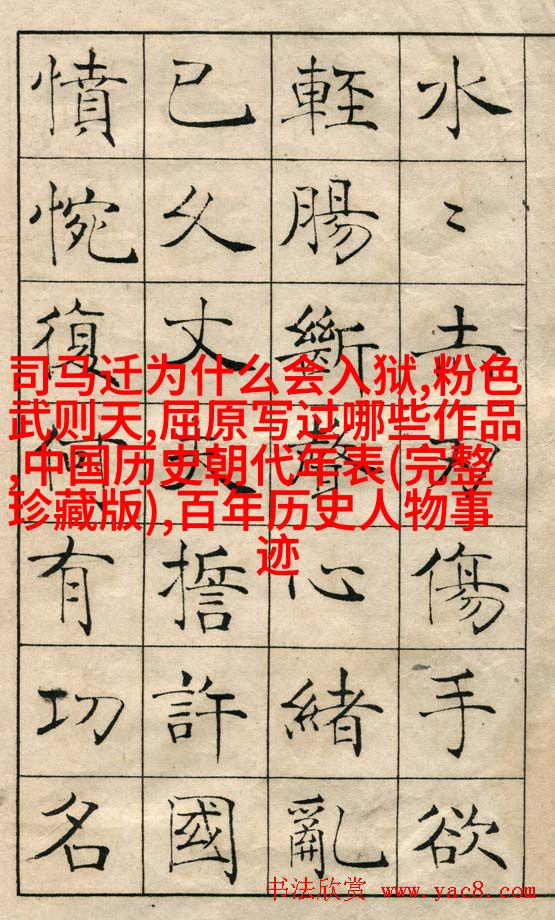 水〻赤刃傷手欲
輕腸斷聲心緒亂
已久丈夫誓許國
憤惋復何有功名
司马迁为什么会入狱,粉色
武则天,屈原写过哪些作品
,中国历史朝代年表(完整
珍藏版),百年历史人物事
迹
书法欣赏 www.yac8.com